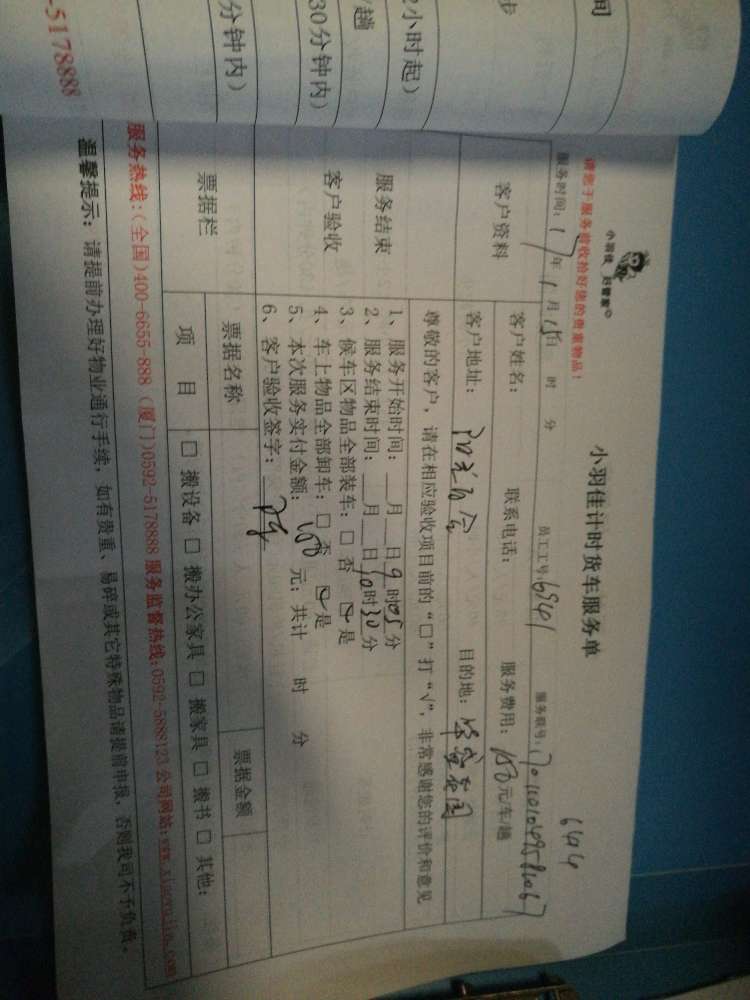 间
步
2小时起）
/趟
30分钟内）
分钟内）
-5178888
小羽佳 好管家
小羽佳计时货车服务单
6494
请您于服务前收拾好您的贵重物品！
服务时间：17年1月15日 时 分 员工工号：69401 服务联号：
客户资料
客户姓名： 联系电话： 服务费用：150元/车/趟
客户地址： 目的地：
尊敬的客户，请在相应验收项目前的“□”打“√”，非常感谢您的评价和意见
服务结束
客户验收
1、服务开始时间：__月__日9时05分
2、服务结束时间：__月__日10时30分
3、候车区物品全部装车：□ 否 ☑ 是
4、车上物品全部卸车：□ 否 ☑ 是
5、本次服务实付金额：150元；共计 时 分
6、客户验收签字：
票据栏
票据名称 票据金额
项 目 □ 搬设备 □ 搬办公家具 □ 搬家具 □ 搬书 □ 其他：
服务热线：(全国)400-6655-888 (厦门)0592-5178888 服务监督热线：0592-5888123 公司网站：www.xiaoyujia.com
温馨提示：请提前办理好物业通行手续，如有贵重、易碎或其它特殊物品请提前申报，否则我司不予负责。